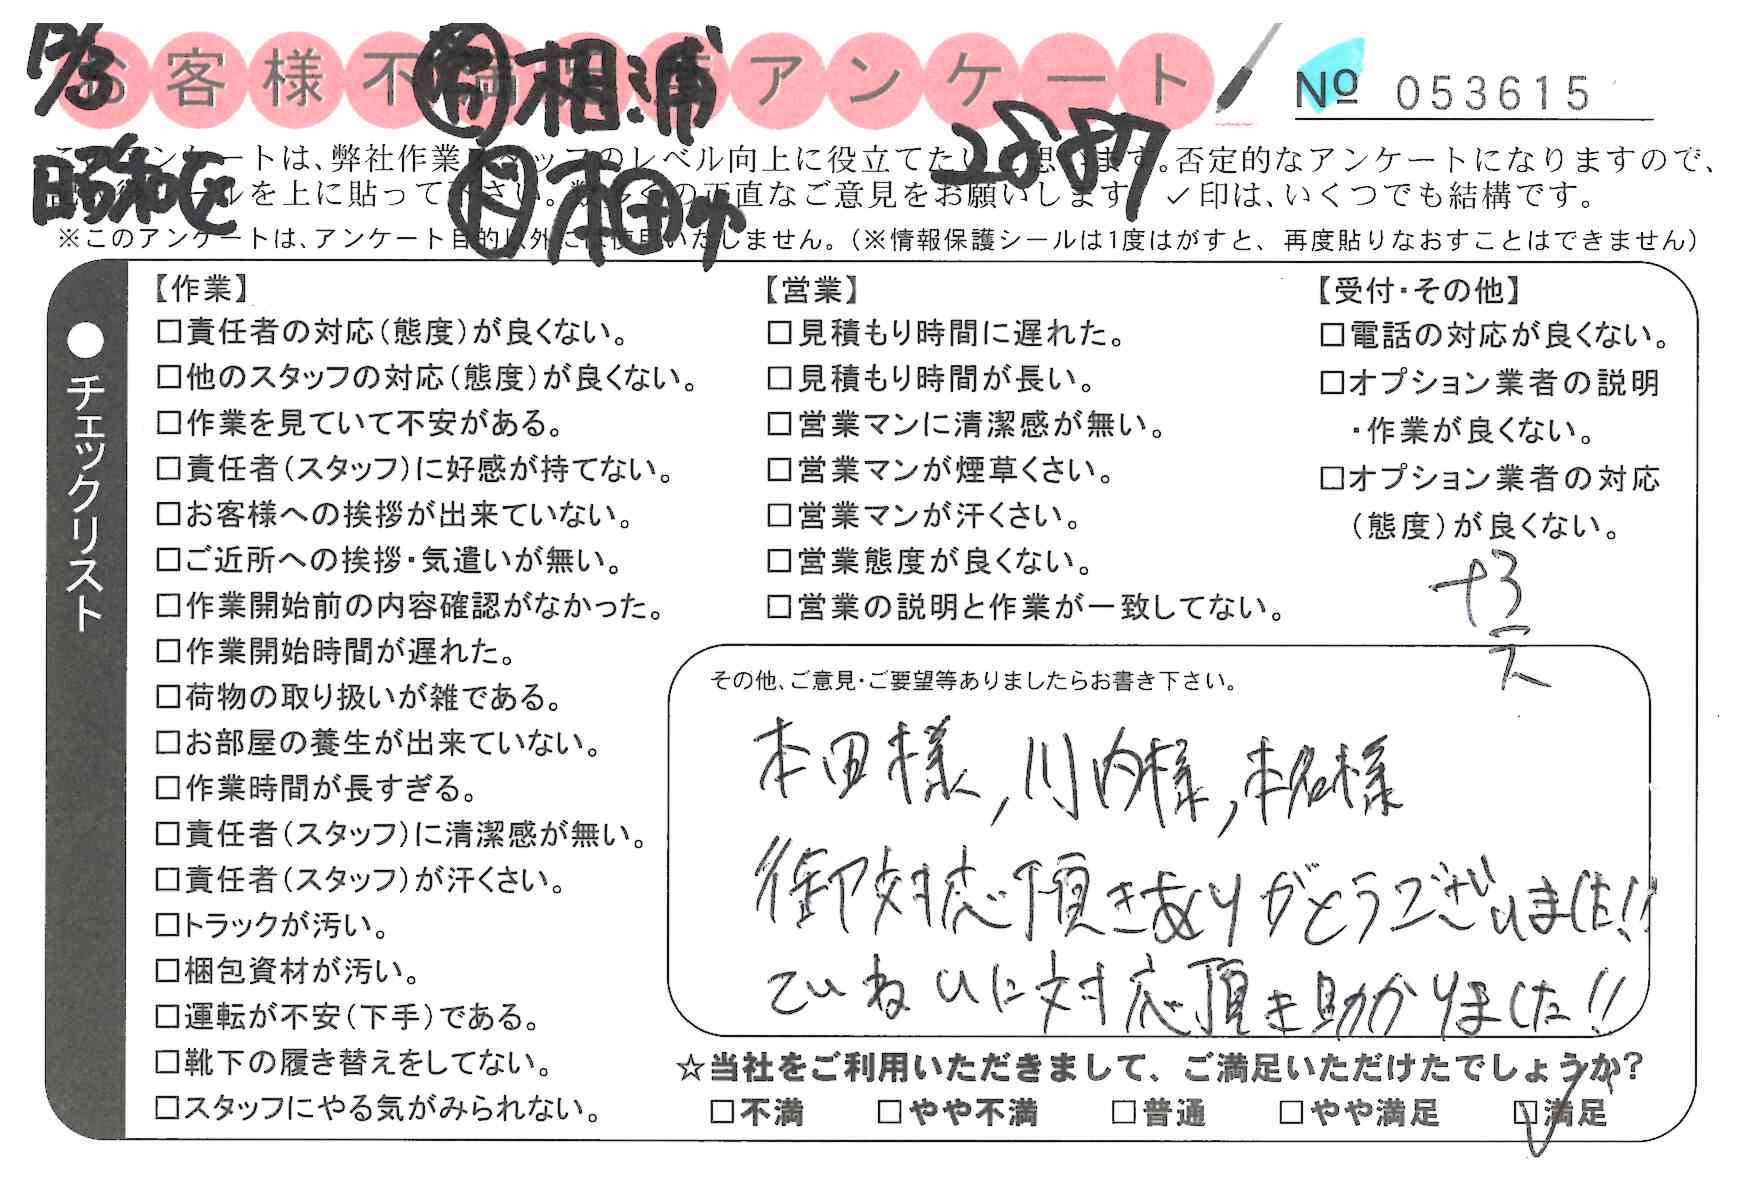 12/3
お客様不満足度アンケート
㊒相浦
№ 053615
2887
昭和区
このアンケートは、弊社作業スタッフのレベル向上に役立てたいと思います。否定的なアンケートになりますので、
シールを上に貼って下さい。数多くの正直なご意見をお願いします。✓印は、いくつでも結構です。
※このアンケートは、アンケート目的以外には使用いたしません。(※情報保護シールは1度はがすと、再度貼りなおすことはできません)
●チェックリスト
【作業】
□責任者の対応(態度)が良くない。
□他のスタッフの対応(態度)が良くない。
□作業を見ていて不安がある。
□責任者(スタッフ)に好感が持てない。
□お客様への挨拶が出来ていない。
□ご近所への挨拶・気遣いが無い。
□作業開始前の内容確認がなかった。
□作業開始時間が遅れた。
□荷物の取り扱いが雑である。
□お部屋の養生が出来ていない。
□作業時間が長すぎる。
□責任者(スタッフ)に清潔感が無い。
□責任者(スタッフ)が汗くさい。
□トラックが汚い。
□梱包資材が汚い。
□運転が不安(下手)である。
□靴下の履き替えをしてない。
□スタッフにやる気がみられない。
【営業】
□見積もり時間に遅れた。
□見積もり時間が長い。
□営業マンに清潔感が無い。
□営業マンが煙草くさい。
□営業マンが汗くさい。
□営業態度が良くない。
□営業の説明と作業が一致してない。
【受付・その他】
□電話の対応が良くない。
□オプション業者の説明
・作業が良くない。
□オプション業者の対応
(態度)が良くない。
+3
その他、ご意見・ご要望等ありましたらお書き下さい。
本田様,川内様,本名様
御対応頂きありがとうございました!!
ていねいに対応頂き助かりました!!
☆当社をご利用いただきまして、ご満足いただけたでしょうか?
□不満 □やや不満 □普通 □やや満足 ☑満足